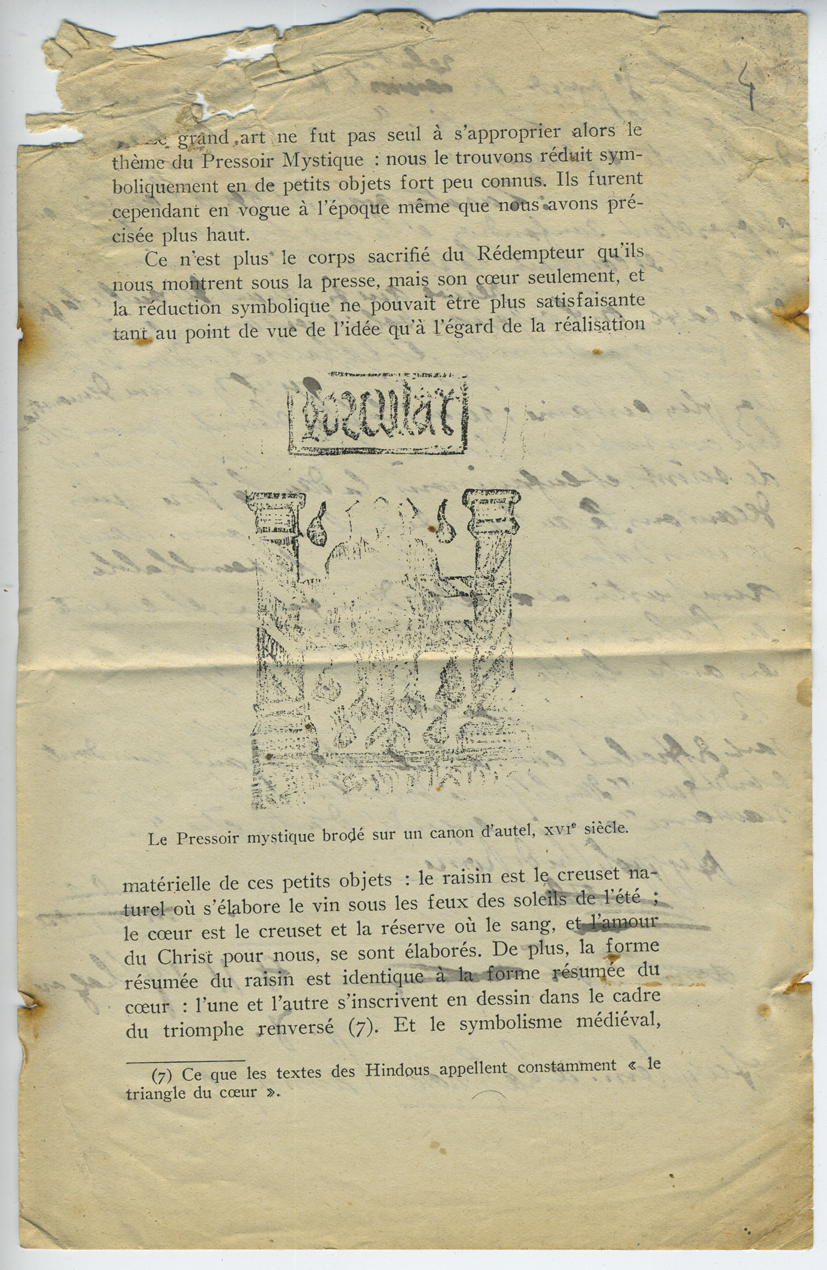 4
Le grand art ne fut pas seul à s'approprier alors le
thème du Pressoir Mystique : nous le trouvons réduit sym-
boliquement en de petits objets fort peu connus. Ils furent
cependant en vogue à l'époque même que nous avons pré-
cisée plus haut.
Ce n'est plus le corps sacrifié du Rédempteur qu'ils
nous montrent sous la presse, mais son cœur seulement, et
la réduction symbolique ne pouvait être plus satisfaisante
tant au point de vue de l'idée qu'à l'égard de la réalisation
Le Pressoir mystique brodé sur un canon d'autel, XVIe siècle.
matérielle de ces petits objets : le raisin est le creuset na-
turel où s'élabore le vin sous les feux des soleils de l'été ;
le cœur est le creuset et la réserve où le sang, et l'amour
du Christ pour nous, se sont élaborés. De plus, la forme
résumée du raisin est identique à la forme résumée du
cœur : l'une et l'autre s'inscrivent en dessin dans le cadre
du triomphe renversé (7). Et le symbolisme médiéval,
(7) Ce que les textes des Hindous appellent constamment « le
triangle du cœur ».